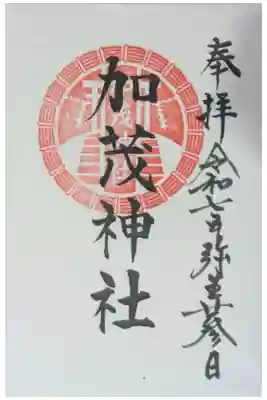 奉拝 令和七年弥生葵日
加茂神社